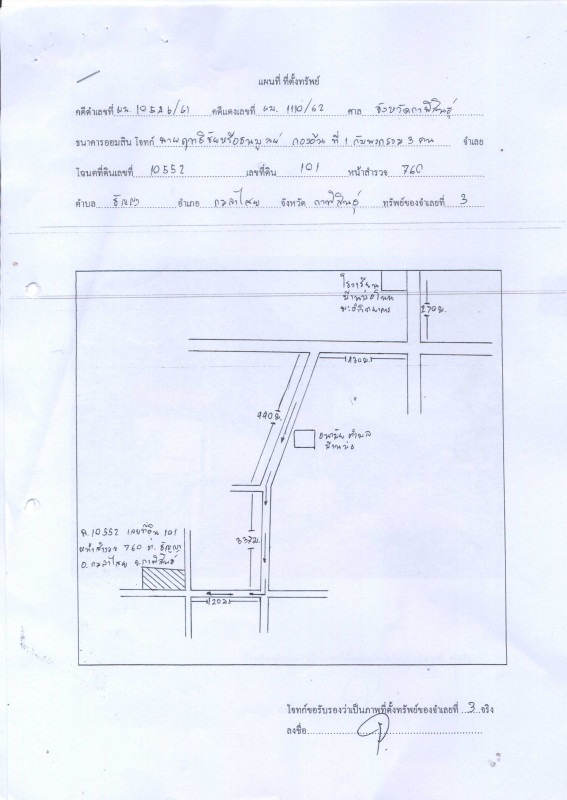 แผนที่ ที่ตั้งทรัพย์
คดีดำเลขที่ ผบ. 10526/61 คดีแดงเลขที่ ผบ. 1110/62 ศาล จังหวัดกาฬสินธุ์
ธนาคารออมสิน โจทก์ ที่ 1 กับพวกรวม 3 คน จำเลย
โฉนดที่ดินเลขที่ 10552 เลขที่ดิน 101 หน้าสำรวจ 760
ตำบล ธัญญา อำเภอ กมลาไสย จังหวัด กาฬสินธุ์ ทรัพย์ของจำเลยที่ 3
โรงเรียน
270 ม.
130 ม.
440 ม.
อนามัย ตำบล
337 ม.
ฉ. 10552 เลขที่ดิน 101
หน้าสำรวจ 760 ต. ธัญญา
อ. กมลาไสย จ. กาฬสินธุ์
120 ม.
โจทก์ขอรับรองว่าเป็นภาพที่ตั้งทรัพย์ของจำเลยที่ 3 จริง
ลงชื่อ